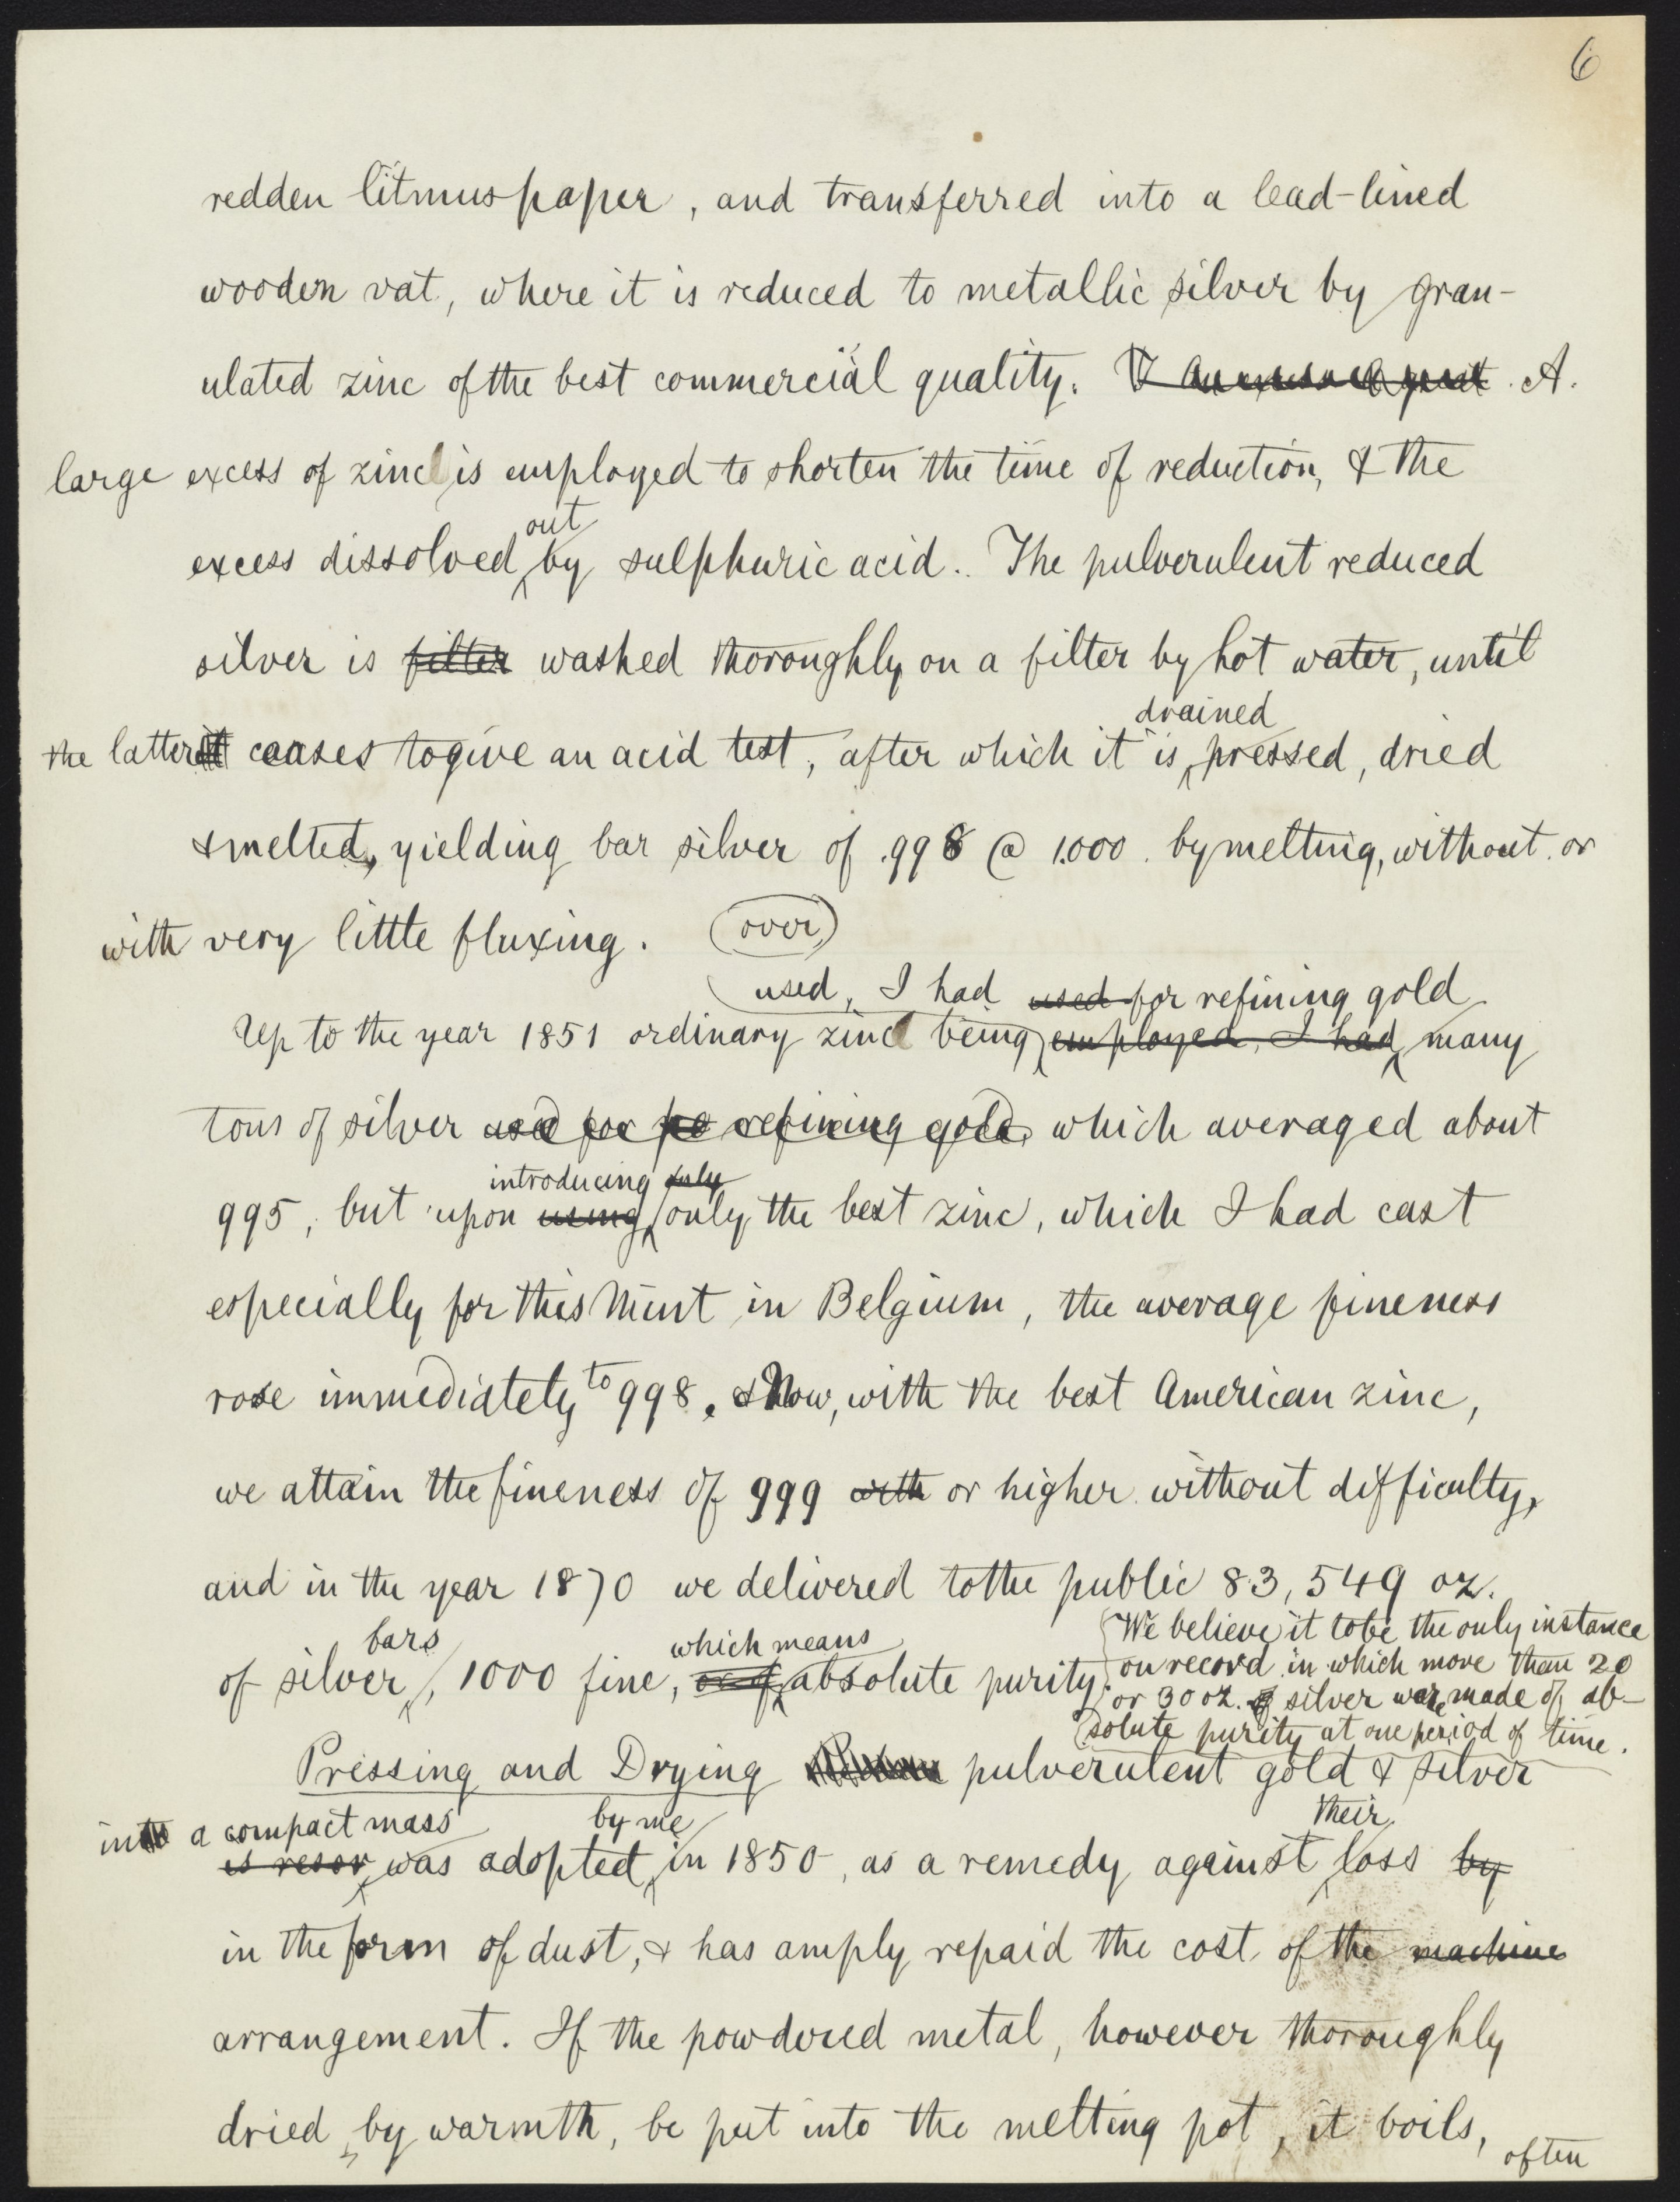 6
redden litmus paper, and transferred into a lead-lined
wooden vat, where it is reduced to metallic silver by gran-
ulated zinc of the best commercial quality. A.
large excess of zinc is employed to shorten the time of reduction, & the
out
excess dissolved by sulphuric acid.. The pulverulent reduced
silver is filter washed thoroughly on a filter by hot water, until
drained
the latter it ceases to give an acid test, after which it is pressed, dried
& melted, yielding bar silver of .998 @ 1.000. by melting, without or
with very little fluxing. over
used, I had used for refining gold
Up to the year 1851 ordinary zinc being employed, I had many
tons of silver used for re refining gold, which averaged about
introducing only
995, but upon using only the best zinc, which I had cast
especially for this Mint in Belgium, the average fineness
rose immediately to 998. & Now, with the best American zinc,
we attain the fineness of 999 with or higher without difficulty,
and in the year 1870 we delivered to the public 83,549 oz.
bars which means We believe it to be the only instance
of silver, 1000 fine, absolute purity. on record in which more than 20
or 30 oz. of silver were made of ab-
solute purity at one period of time.
Pressing and Drying pulverulent gold & silver
into a compact mass by me their
is resor was adopted in 1850, as a remedy against loss by
in the form of dust, & has amply repaid the cost of the machine
arrangement. If the powdered metal, however thoroughly
dried by warmth, be put into the melting pot, it boils,
often